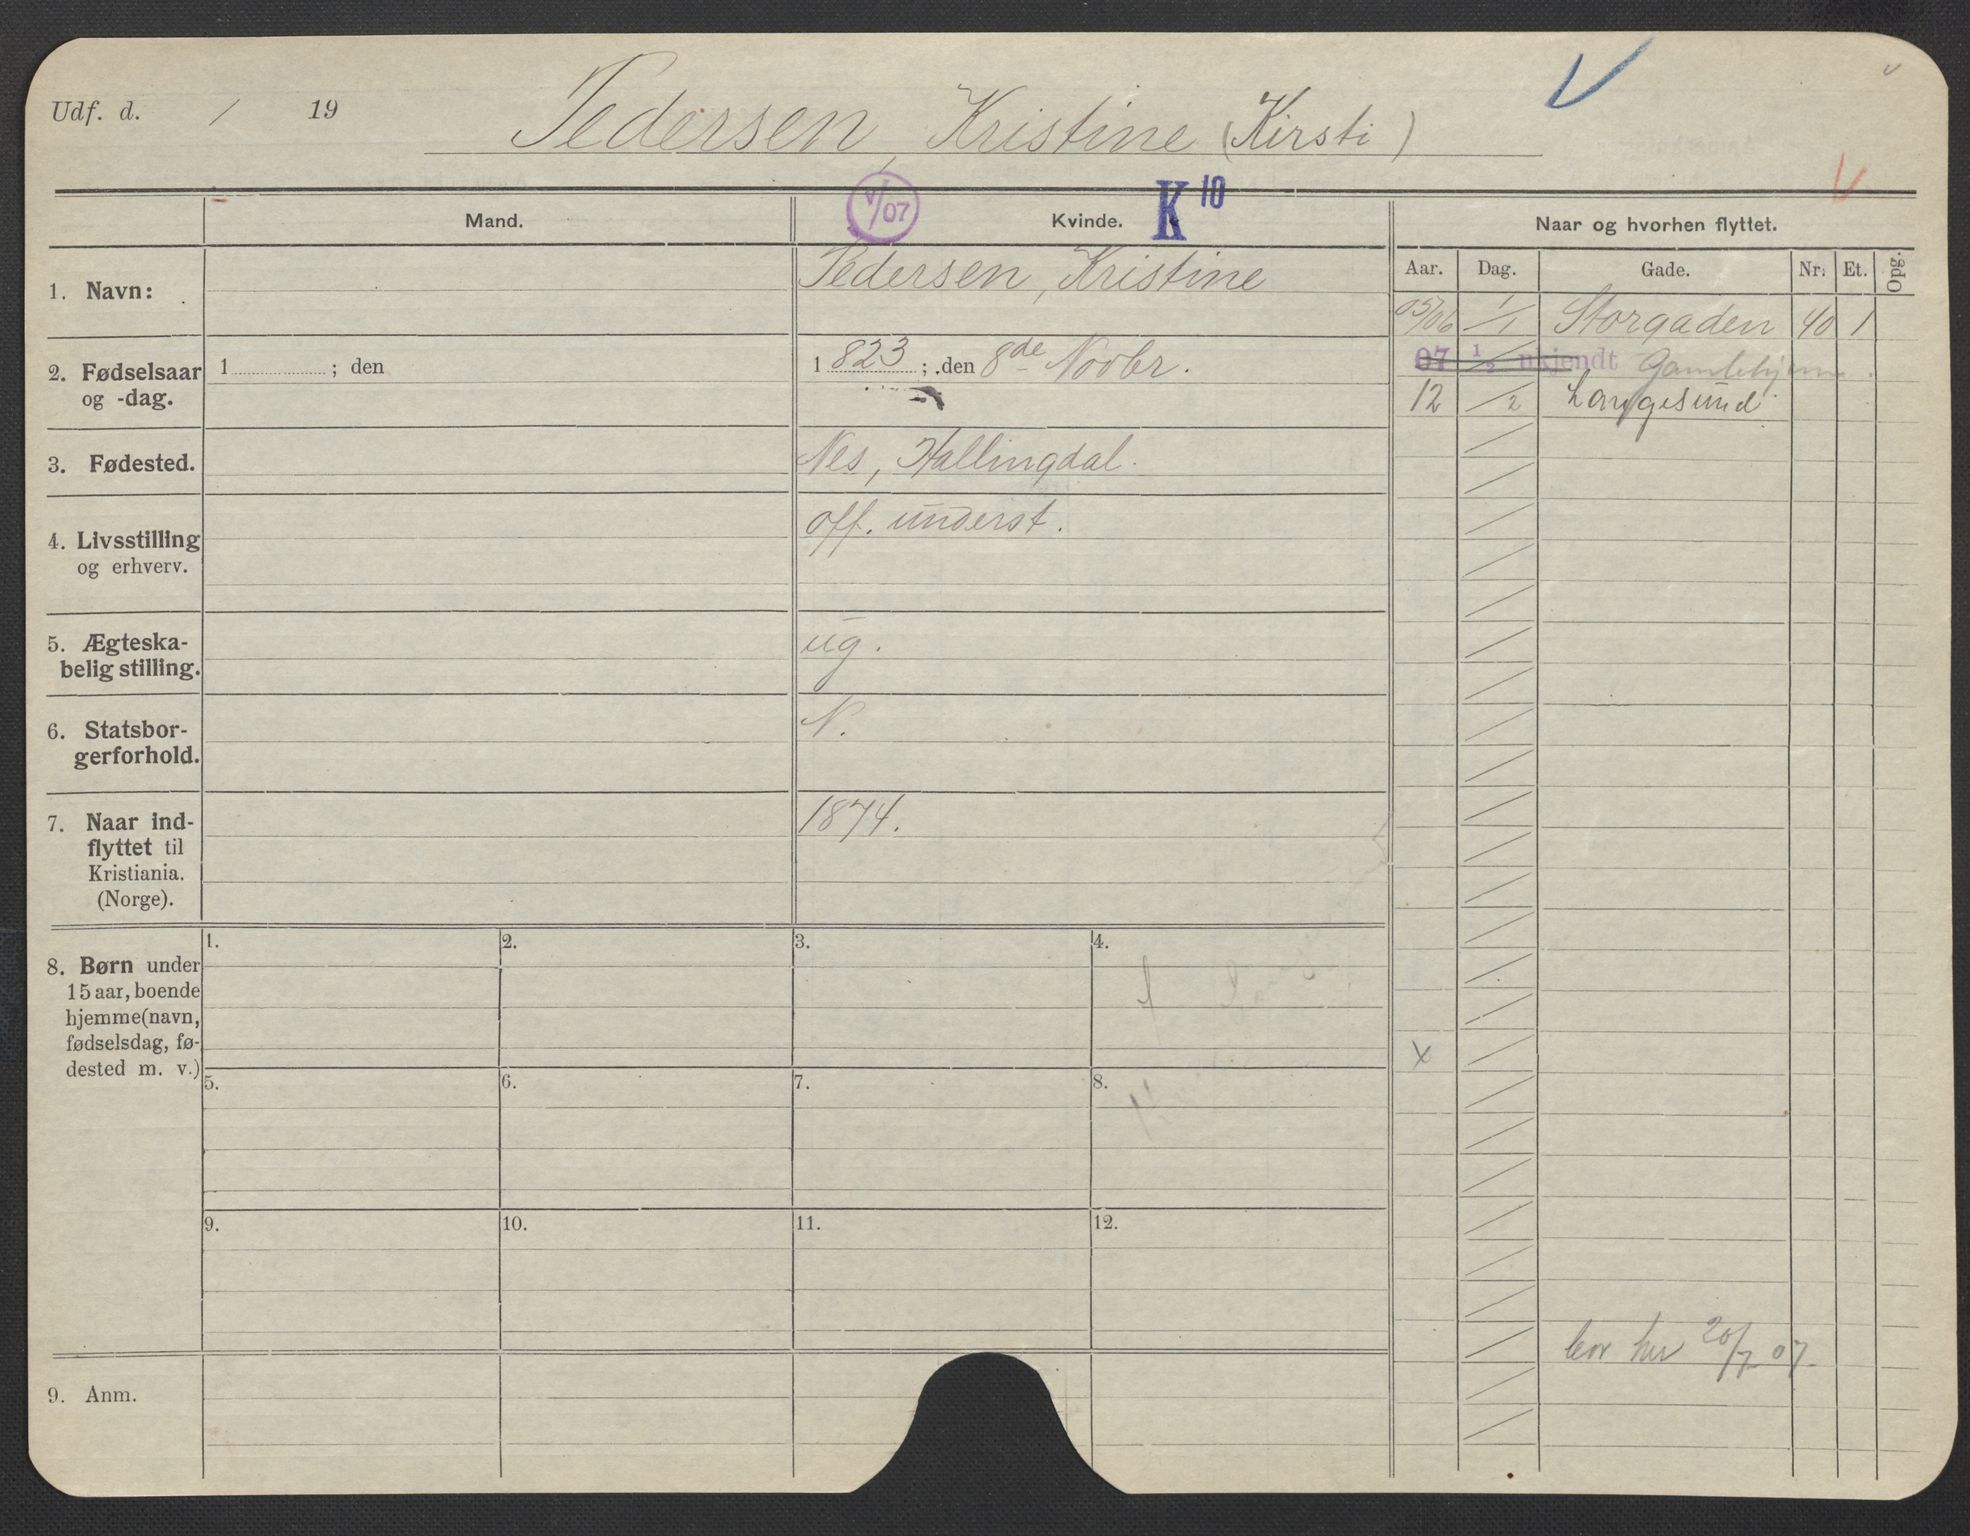 Udf. d. / 19
Pedersen, Kristine (Kirsti)
V/07
K 10
Mand.
Kvinde.
Naar og hvorhen flyttet.
Aar. Dag. Gade. Nr. Et. Opg.
1. Navn:
Pedersen, Kristine
05/06 1/1 Storgaden 40 1
2. Fødselsaar og -dag.
1 ; den
1 823 ; den 8de Novbr.
07 1/2 ukjendt Gamlehjem.
12 /2 Langesund
3. Fødested.
Nes, Hallingdal.
4. Livsstilling
og erhverv.
off. underst.
5. Ægteska-
belig stilling.
ug.
6. Statsbor-
gerforhold.
N.
7. Naar ind-
flyttet til
Kristiania.
(Norge).
1874.
8. Børn under
15 aar, boende
hjemme (navn,
fødselsdag, fø-
dested m. v.)
1. 2. 3. 4.
x
5. 6. 7. 8.
9. 10. 11. 12.
bor her 20/7 07.
9. Anm.